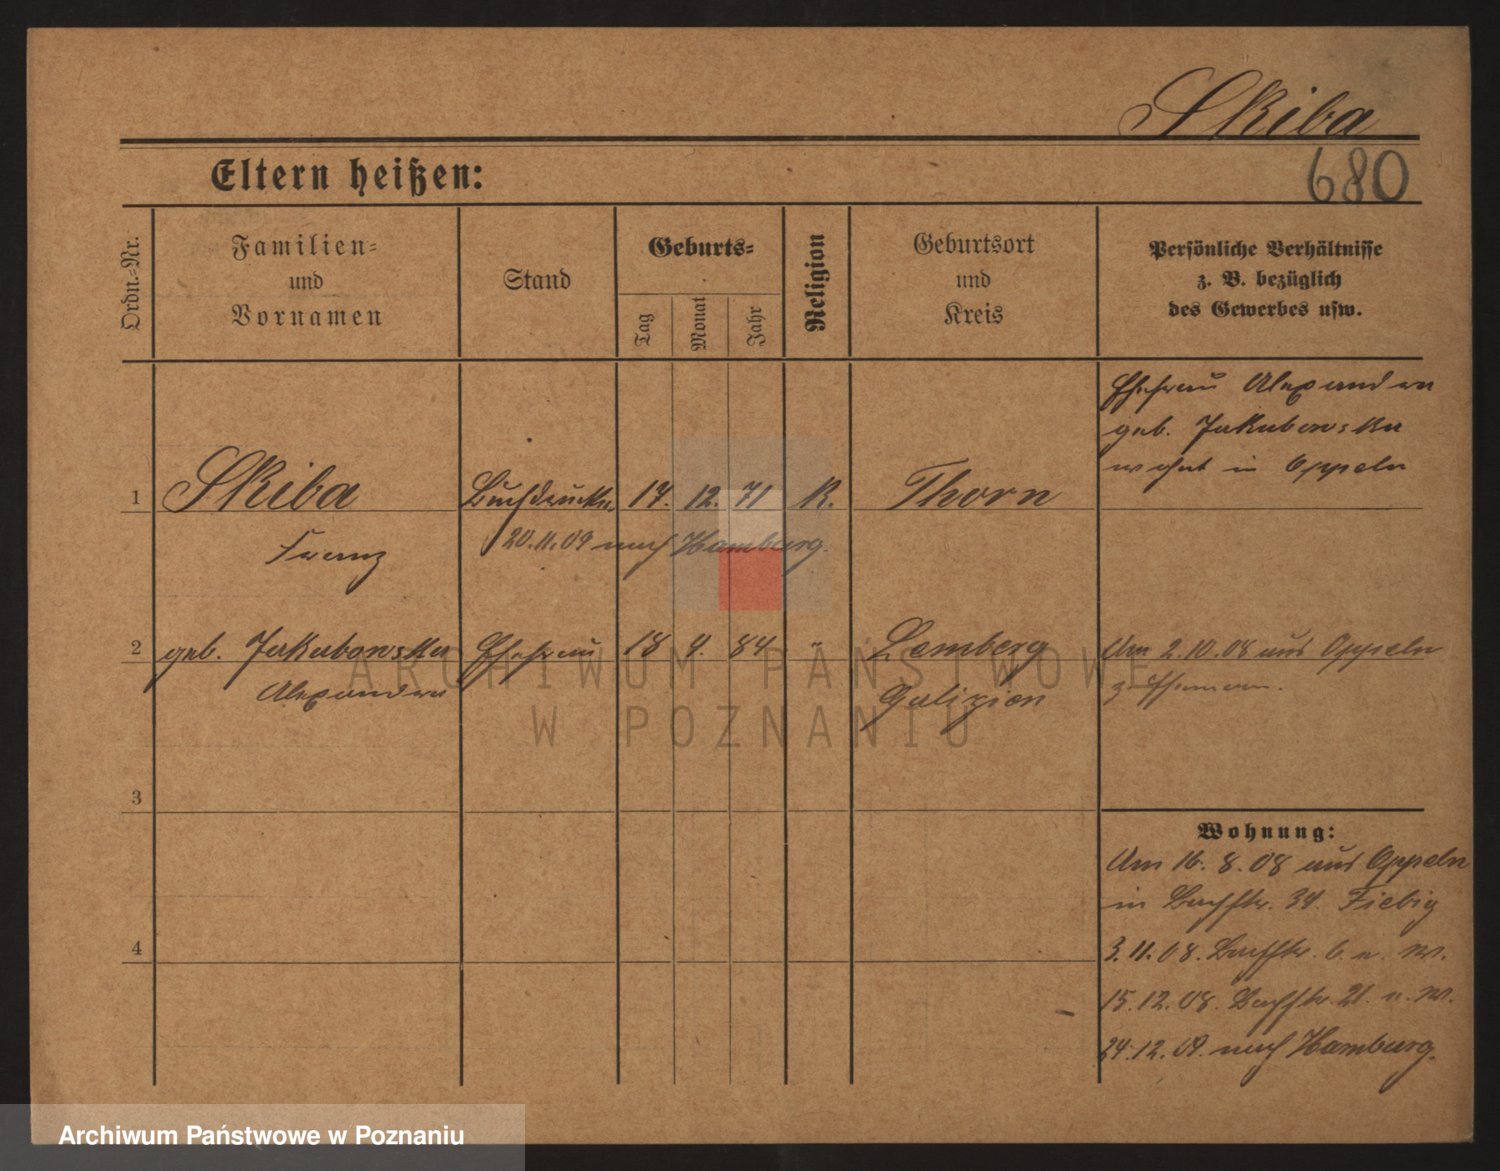 Skiba
680
Eltern heißen:
Ordn.-Nr.
Familien-
und
Vornamen
Stand
Geburts-
Tag
Monat
Jahr
Religion
Geburtsort
und
Kreis
Persönliche Verhältnisse
z. B. bezüglich
des Gewerbes usw.
Ehefrau Alexandra
geb. Jakubowska
wohnt in Oppeln
1 Skiba Buchdrucker 17. 12. 71 K. Thorn
Franz
20.11.09 nach Hamburg.
2 geb. Jakubowska Ehefrau 18 4. 84 " Lemberg
Alexandra
Galizien
Am 2.10.08 aus Oppeln
3
4
Wohnung:
Am 16. 8. 08 aus Oppeln
in Bachstr. 34. Fiebig
3.11.08. Bachstr. 6. u. W.
15.12.08. Bachstr. 21 u. W.
24.12.09. nach Hamburg.
ARCHIWUM PAŃSTWOWE
W POZNANIU
Archiwum Państwowe w Poznaniu